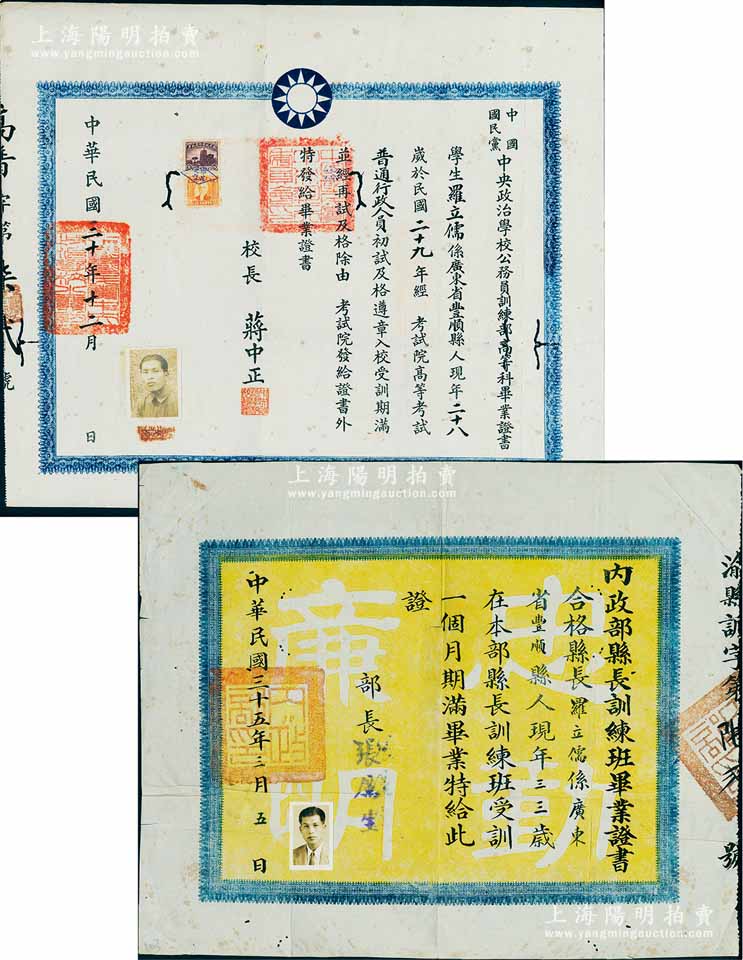 上海陽明拍賣
www.yangmingauction.com
中國國民黨 中央政治學校公務員訓練部高等科畢業證書
學生羅立儒係廣東省豐順縣人現年二十八
歲於民國二十九年經 考試院高等考試
普通行政人員初試及格遵章入校受訓期滿
並經再試及格除由 考試院發給證書外
特發給畢業證書
校長 蔣中正
中華民國三十年十二月 日
高普字第 號
上海陽明拍賣
www.yangmingauction.com
內政部縣長訓練班畢業證書
合格縣長羅立儒係廣東
省豐順縣人現年三三歲
在本部縣長訓練班受訓
一個月期滿畢業特給此
證
部長 張厲生
中華民國三十五年三月五日
忠勤
廉明
渝縣訓字第 號
上海陽明拍賣
www.yangmingauction.com